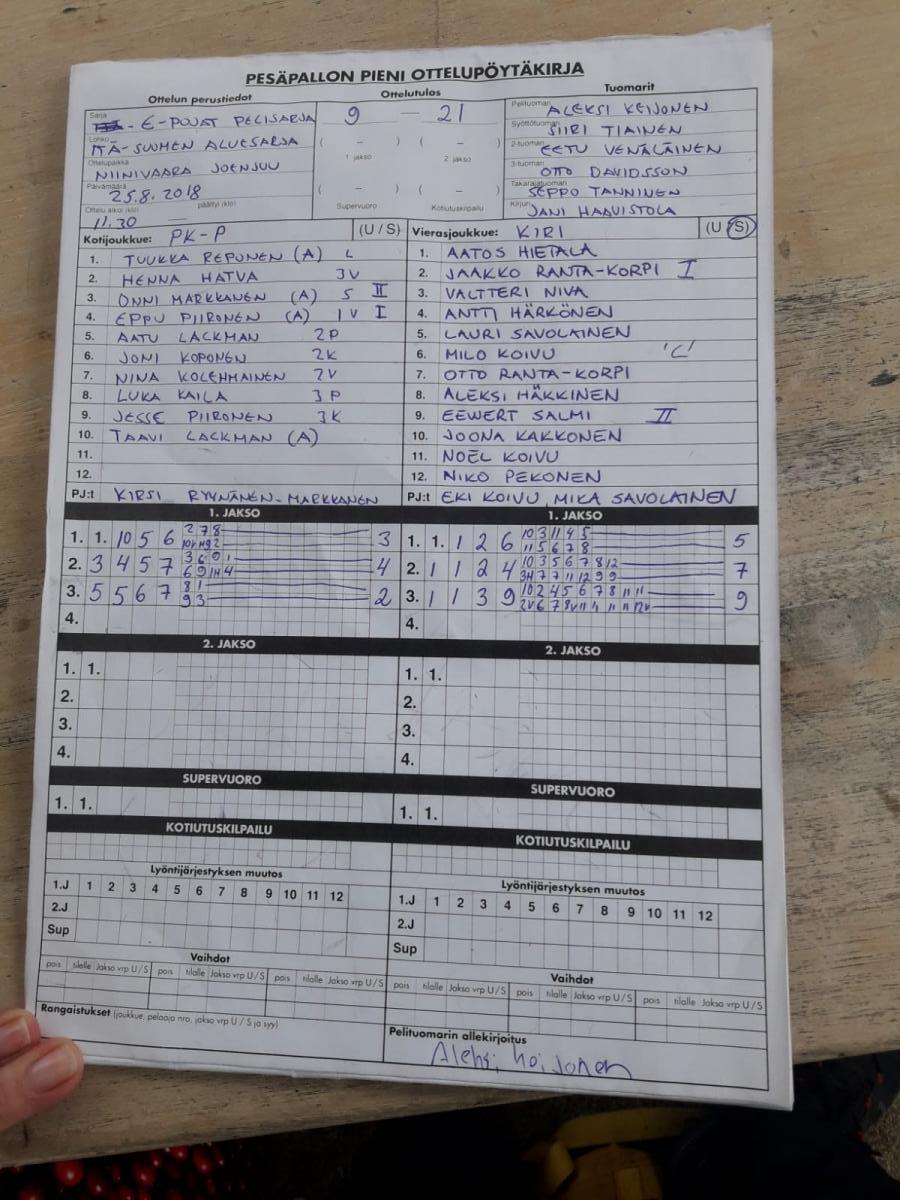 PESÄPALLON PIENI OTTELUPÖYTÄKIRJA
Ottelun perustiedot
Sarja
E-POJAT PELISARJA
Lohko
ITÄ-SUOMEN ALUESARJA
Ottelupaikka
NIINIVAARA JOENSUU
Päivämäärä
25.8.2018
Ottelu alkoi (klo) päättyi (klo)
11.30 —
Ottelutulos
9 — 21
( – ) ( – )
1 jakso 2 jakso
( – ) ( – )
Supervuoro Kotiutuskilpailu
Tuomarit
Pelituomari
ALEKSI KEIJONEN
Syöttötuomari
SIIRI TIAINEN
2-tuomari
EETU VENÄLÄINEN
3-tuomari
OTTO DAVIDSSON
Takarajatuomari
SEPPO TANNINEN
Kirjuri
JANI HAAVISTOLA
Kotijoukkue: PK-P (U / S)
1. TUUKKA REPONEN (A) L
2. HENNA HATVA 3V
3. ONNI MARKKANEN (A) S II
4. EPPU PIIRONEN (A) 1V I
5. AATU LACKMAN 2P
6. JONI KOPONEN 2K
7. NINA KOLEHMAINEN 2V
8. LUKA KAILA 3P
9. JESSE PIIRONEN 3K
10. TAAVI LACKMAN (A)
11.
12.
PJ:t KIRSI RYYNÄNEN-MARKKANEN
Vierasjoukkue: KIRI (U / S)
1. AATOS HIETALA
2. JAAKKO RANTA-KORPI I
3. VALTTERI NIVA
4. ANTTI HÄRKÖNEN
5. LAURI SAVOLAINEN
6. MILO KOIVU 'C'
7. OTTO RANTA-KORPI
8. ALEKSI HÄKKINEN
9. EEWERT SALMI II
10. JOONA KAKKONEN
11. NOËL KOIVU
12. NIKO PEKONEN
PJ:t EKI KOIVU, MIKA SAVOLAINEN
1. JAKSO
1. 1. 10 5 6 2 7 8 3
2. 3 4 5 7 4
3. 5 5 6 7 8 1 2
9 3
4.
2. JAKSO
1. 1.
2.
3.
4.
SUPERVUORO
1. 1.
KOTIUTUSKILPAILU
Lyöntijärjestyksen muutos
1.J 1 2 3 4 5 6 7 8 9 10 11 12
2.J
Sup
Vaihdot
pois tilalle Jakso vrp U / S pois tilalle Jakso vrp U / S pois tilalle Jakso vrp U / S
Rangaistukset (joukkue, pelaaja nro, jakso vrp U / S ja syy)
1. JAKSO
1. 1. 1 2 6 10 3 11 4 5 5
11 5 6 7 8
2. 1 1 2 4 10 3 5 6 7 8 12 7
3H 7 7 11 12 9 9
3. 1 1 3 9 10 2 4 5 6 7 8 11 11 9
4.
2. JAKSO
1. 1.
2.
3.
4.
SUPERVUORO
1. 1.
KOTIUTUSKILPAILU
Lyöntijärjestyksen muutos
1.J 1 2 3 4 5 6 7 8 9 10 11 12
2.J
Sup
Vaihdot
pois tilalle Jakso vrp U / S pois tilalle Jakso vrp U / S pois tilalle Jakso vrp U / S
Pelituomarin allekirjoitus
Aleksi Keijonen